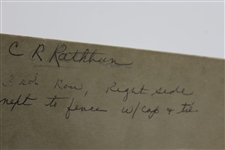 C R Rathbun
2nd Row, Right side
next to fence w/cap & tie